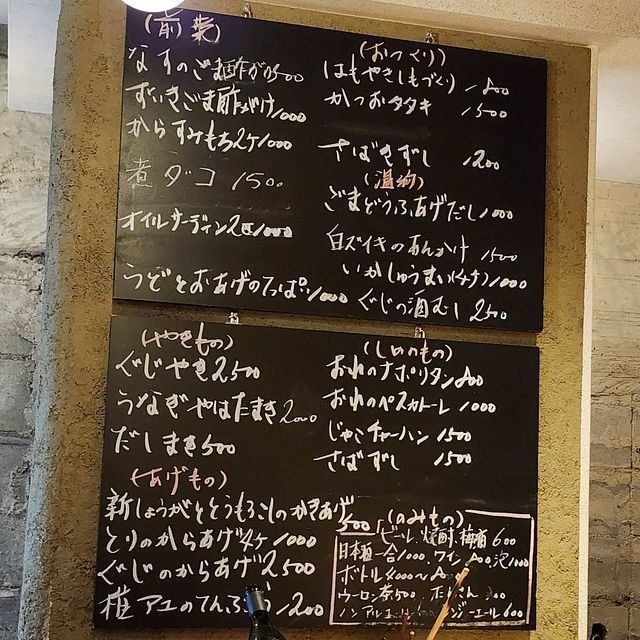 (前菜)
なすのごま酢がけ500
ずいきごま酢がけ1000
からすみもち2ケ1000
煮ダコ 1500
オイルサーディン2匹1000
うどとおあげのてっぱい1000
(おつくり)
はもやきしもづくり 1800
かつおタタキ 1500
さばきずし 1200
(温物)
ごまどうふあげだし1000
白ズイキのあんかけ 1500
いかしゅうまい(4ケ)1000
ぐじの酒むし 2500
(やきもの)
ぐじやき2500
うなぎやはたまき2000
だしまき500
(あげもの)
新しょうがととうもろこしのかきあげ
500
とりのからあげ4ケ 1000
ぐじのからあげ2500
稚アユのてんぷら 1200
(しめのもの)
おれのナポリタン800
おれのペスカトーレ 1000
じゃこチャーハン 1500
さばずし 1500
(のみもの)
ビール、焼酎、梅酒 600
日本酒一合1000、ワイン 800、泡1000
ボトル4000〜
ウーロン茶500、たんさん
ノンアル ジンジーエール600